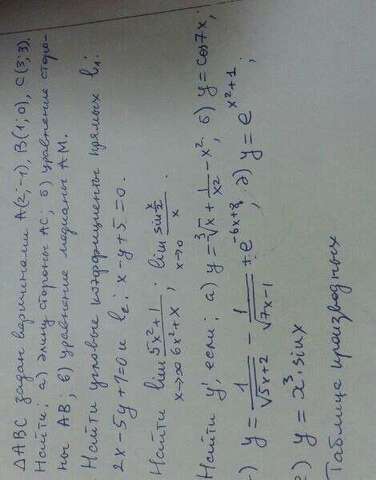 △ABC задан вершинами A(2;-1), B(1;0), C(3;3).
Найти: а) длину стороны AC; б) уравнение сторо-
ны AB; в) уравнение медианы AM.
Найти угловые коэффициенты прямых l₁:
2x-5y+7=0 и l₂: x-y+5=0.
Найти lim x→∞ (5x²+1)/(6x²+x); lim x→0 (sin x/2)/x.
Найти y', если: а) y=∛x+1/x²-x², б) y=cos7x;
) y=1/√(5x+2) - 1/√(7x-1) + e^(-6x+8), д) y=e^(x²+1);
е) y=x³·sinx
Таблица производных